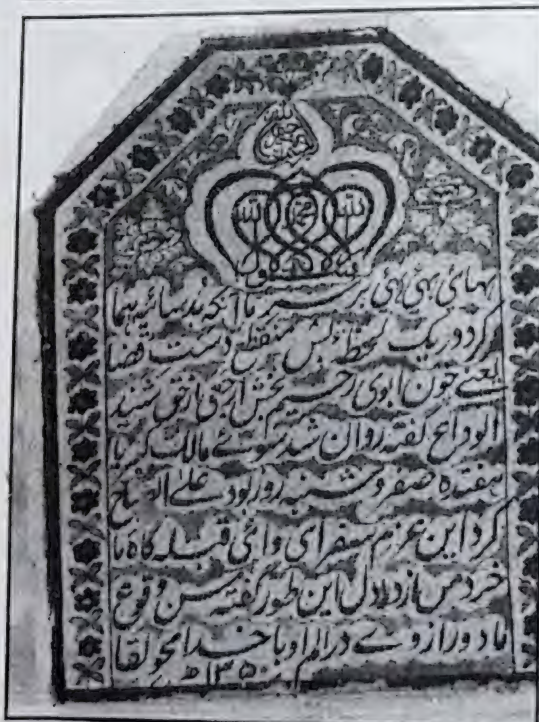 الله
الله محمد الله
ہیہائی ہئی ہئی بر سر ما آنکہ بُد سائیہ ہما
کرد و ریک لحظہ منقطع دستِ قضا
یعنے چون ابوی رحیم بخش ارجعی از حق شنید
الوداع گفتہ روان شد سوئے مالک کبریا
ہفتدہ صفر دو شنبہ روز بود علی الصباح
کرد این عزم سفر ای وائی قبلہ گاہ ما
خرد من از دلادل این طور گفتہ سن وقوع
ما دور از وے در الم او با خدا محو لقا
۱۳۵۰ھ